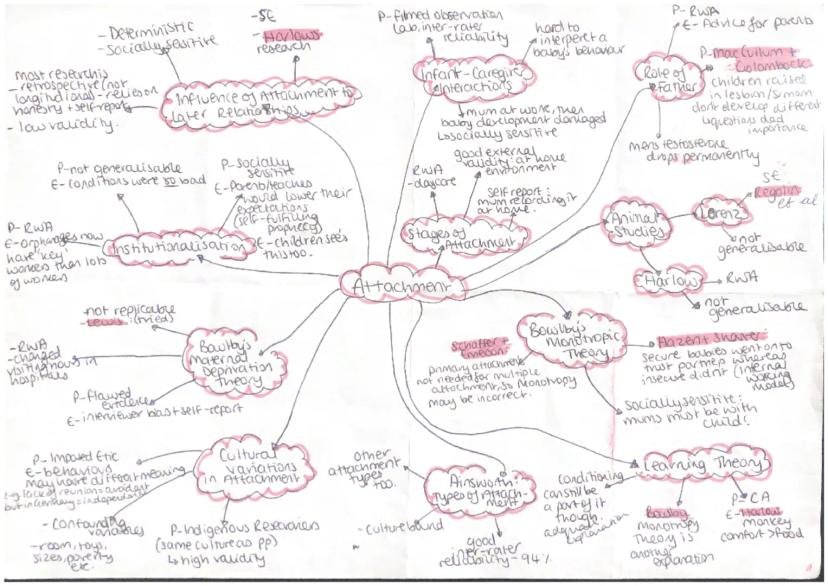 - Deterministic
- Socially sensitive
- SE
- Harlow's
research
most research is
- retrospective (not
longitudinal - relies on
honesty + self report
- low validity.
Influence of Attachment to
Later Relationships
P-filmed observation
Lab, inter-rater
reliability
hard to
interpret a
baby's behaviour
Infant-Caregiver
Interactions
mum at work, then
baby development damaged
↳ socially sensitive
P-RWA
E-Advice for parents
Role of
Father
P-MacCullum +
Golombock
children raised
in lesbian/
don't develop different
question dad
importance
mens testosterone
drops permanently
P-not generalisable
E-conditions were so bad
P-socially
sensitive
E-Parents/teachers
would lower their
expectations
(self-fulfilling
prophecy)
E-children see
this too.
P-RWA
E-orphanages now
have 'key'
workers than lots
of workers
Institutionalisation
good external
validity: at home
environment
RWA
-daycare
self report:
mum recording it
at home.
Stages of
Attachment
Animal
Studies
Lorenz
SE
Regolin
et al
not
generalisable
Harlow
RWA
not
generalisable
Attachment
not replicable
- Lewis: (tried)
- RWA
- changed
visiting hours in
hospitals
Bowlby's
maternal
Deprivation
Theory
P-Flawed
evidence
E-interviewer bias + self-report
Bowlby's
Monotropic
Theory
Schaffer +
Emerson
primary attachment
not needed for multiple
attachment, so Monotropy
may be incorrect.
Hazen + Shaver:
secure babies went on to
trust partners whereas
insecure didn't (internal
working
model)
socially sensitive:
mums must be with
child!
P-Imposed Etic
E-behaviours
may have different meaning
e.g lack of reunion = avoidant
but in Germany = independent
Cultural
variations
in Attachment
- Confounding
variables
- room, toys,
sizes, poverty
etc.
P-Indigenous Researchers
(same culture as pp)
↳ high validity
other
attachment
types
too.
- culture bound
Ainsworth:
Types of Attach-
ment
good
inter-rater
reliability - 94%
Learning Theory
conditioning
can still be
a part of it
though.
adequate
explanation
Bowlby
monotropy
Theory is
another
explanation
P-CA
E-Harlow
monkey
comfort > food